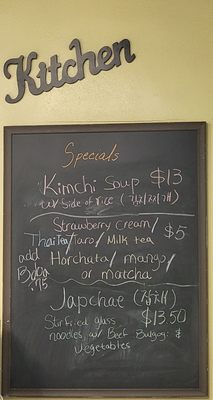 Kitchen
Specials
Kimchi Soup $13
w/ side of rice (김치찌개)
Strawberry cream/
Thai Tea/Taro/Milk tea $5
add Horchata/mango/
Boba or matcha
.75
Japchae (잡채)
Stirfried glass $13.50
noodles w/ Beef Bulgogi &
vegetables